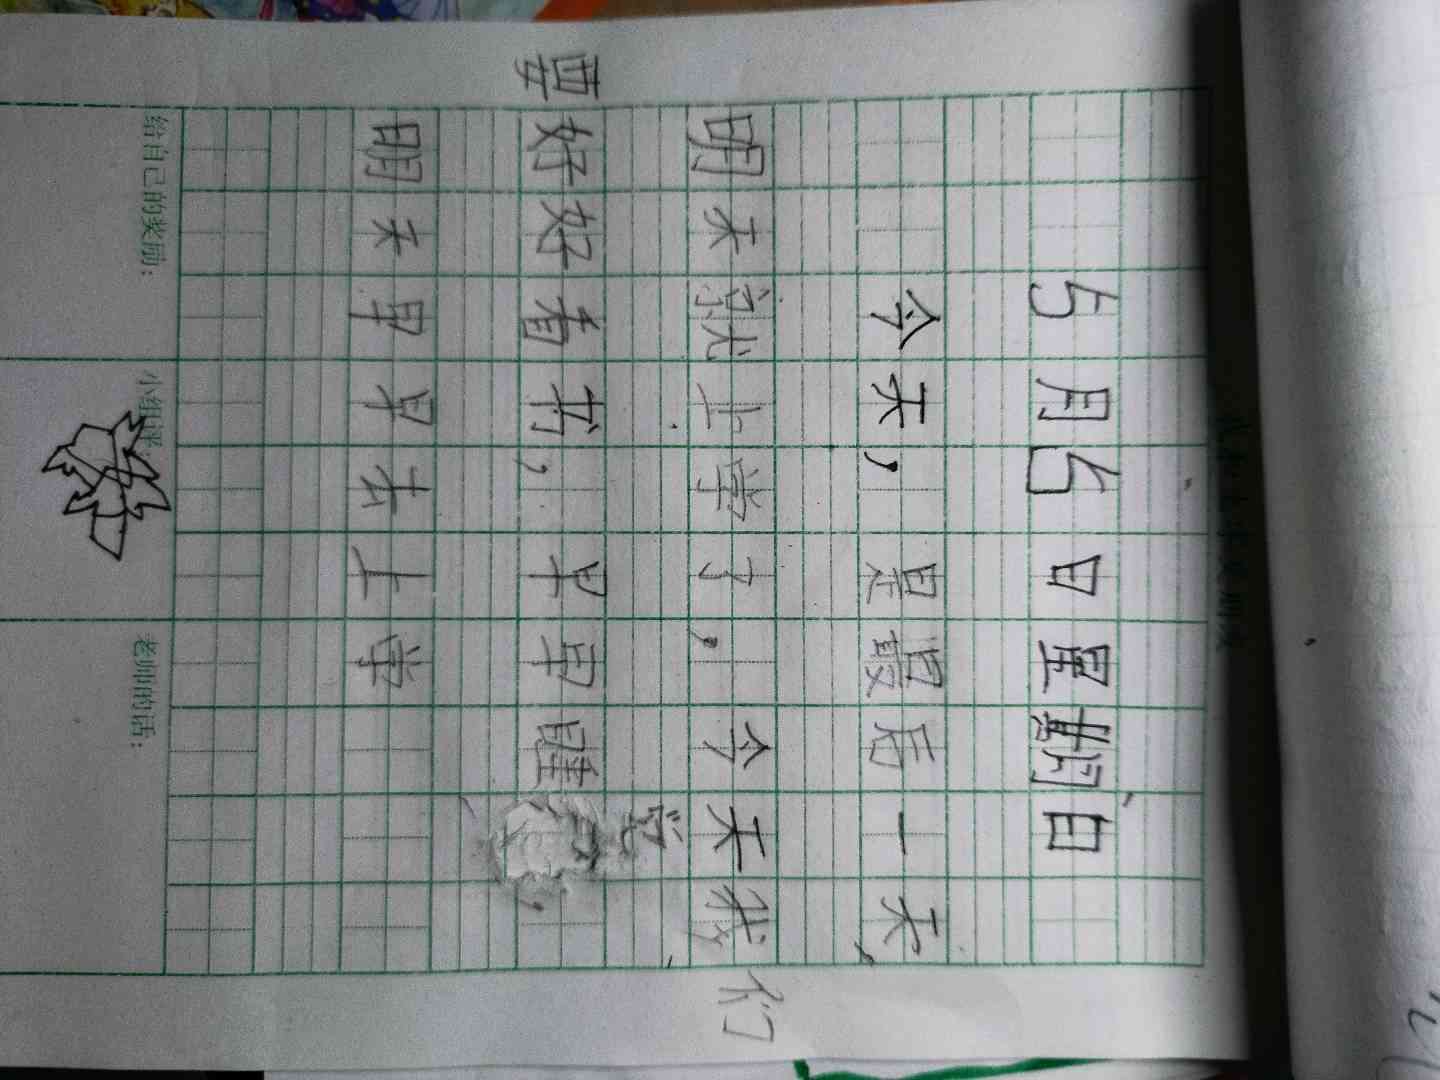 5月5日星期日
今天，是最后一天，
明天就上学了，今天我们
要好好看书，早早睡觉，
明天早早去上学
给自己的奖励：
小组评：
老师的话：